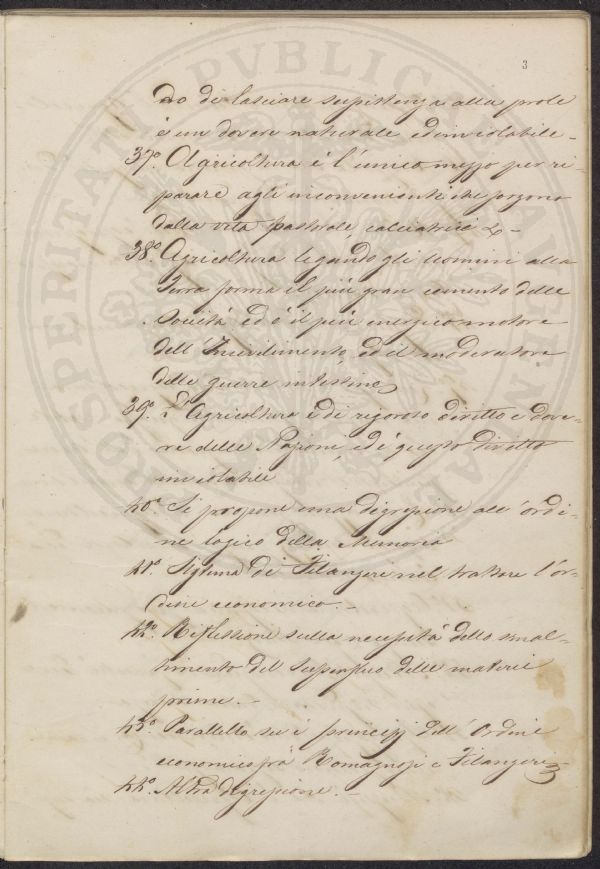 3
do di lasciare sussistenza alla prole
è un dovere naturale ed inviolabile -
37º. Agricoltura é l'unico mezzo per ri-
parare agli inconvenienti che sorgono
dalla vita pastorale, cacciatrice &. -
38º. Agricoltura legando gli uomini alla
terra forma il più gran cemento delle
Società ed é il più energico motore
dell'Incivilimento, ed il moderatore
delle guerre intestine
39º. L'Agricoltura é di rigoroso diritto e dove-
re delle Nazioni, ed é questo diritto
inviolabile
40º. Si propone una digressione all'ordi-
ne logico della Memoria
41º. Sistema di Filangeri nel trattare l'or-
dine economico. -
42º. Riflessione sulla necessitá dello smal-
timento del superfluo delle materie
prime. -
43º. Paralello su i principj dell'Ordine
economico frá Romagnosi e Filangeri
44º. Altra digressione. -
PROSPERITATI PVBLICAE